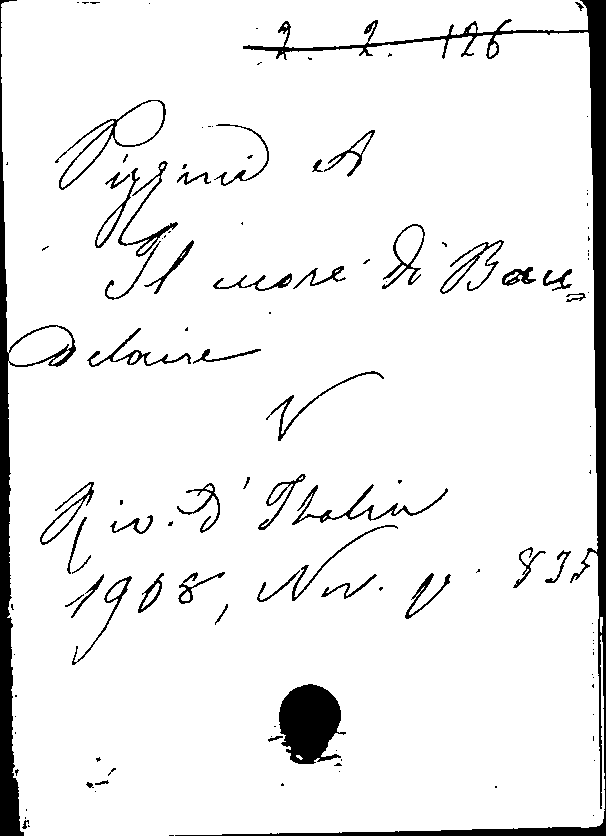 2. 2. 126
Pizzini A
Il cuore di Bau=
delaire
V
Riv. d'Italia
1908, Nov. p. 835